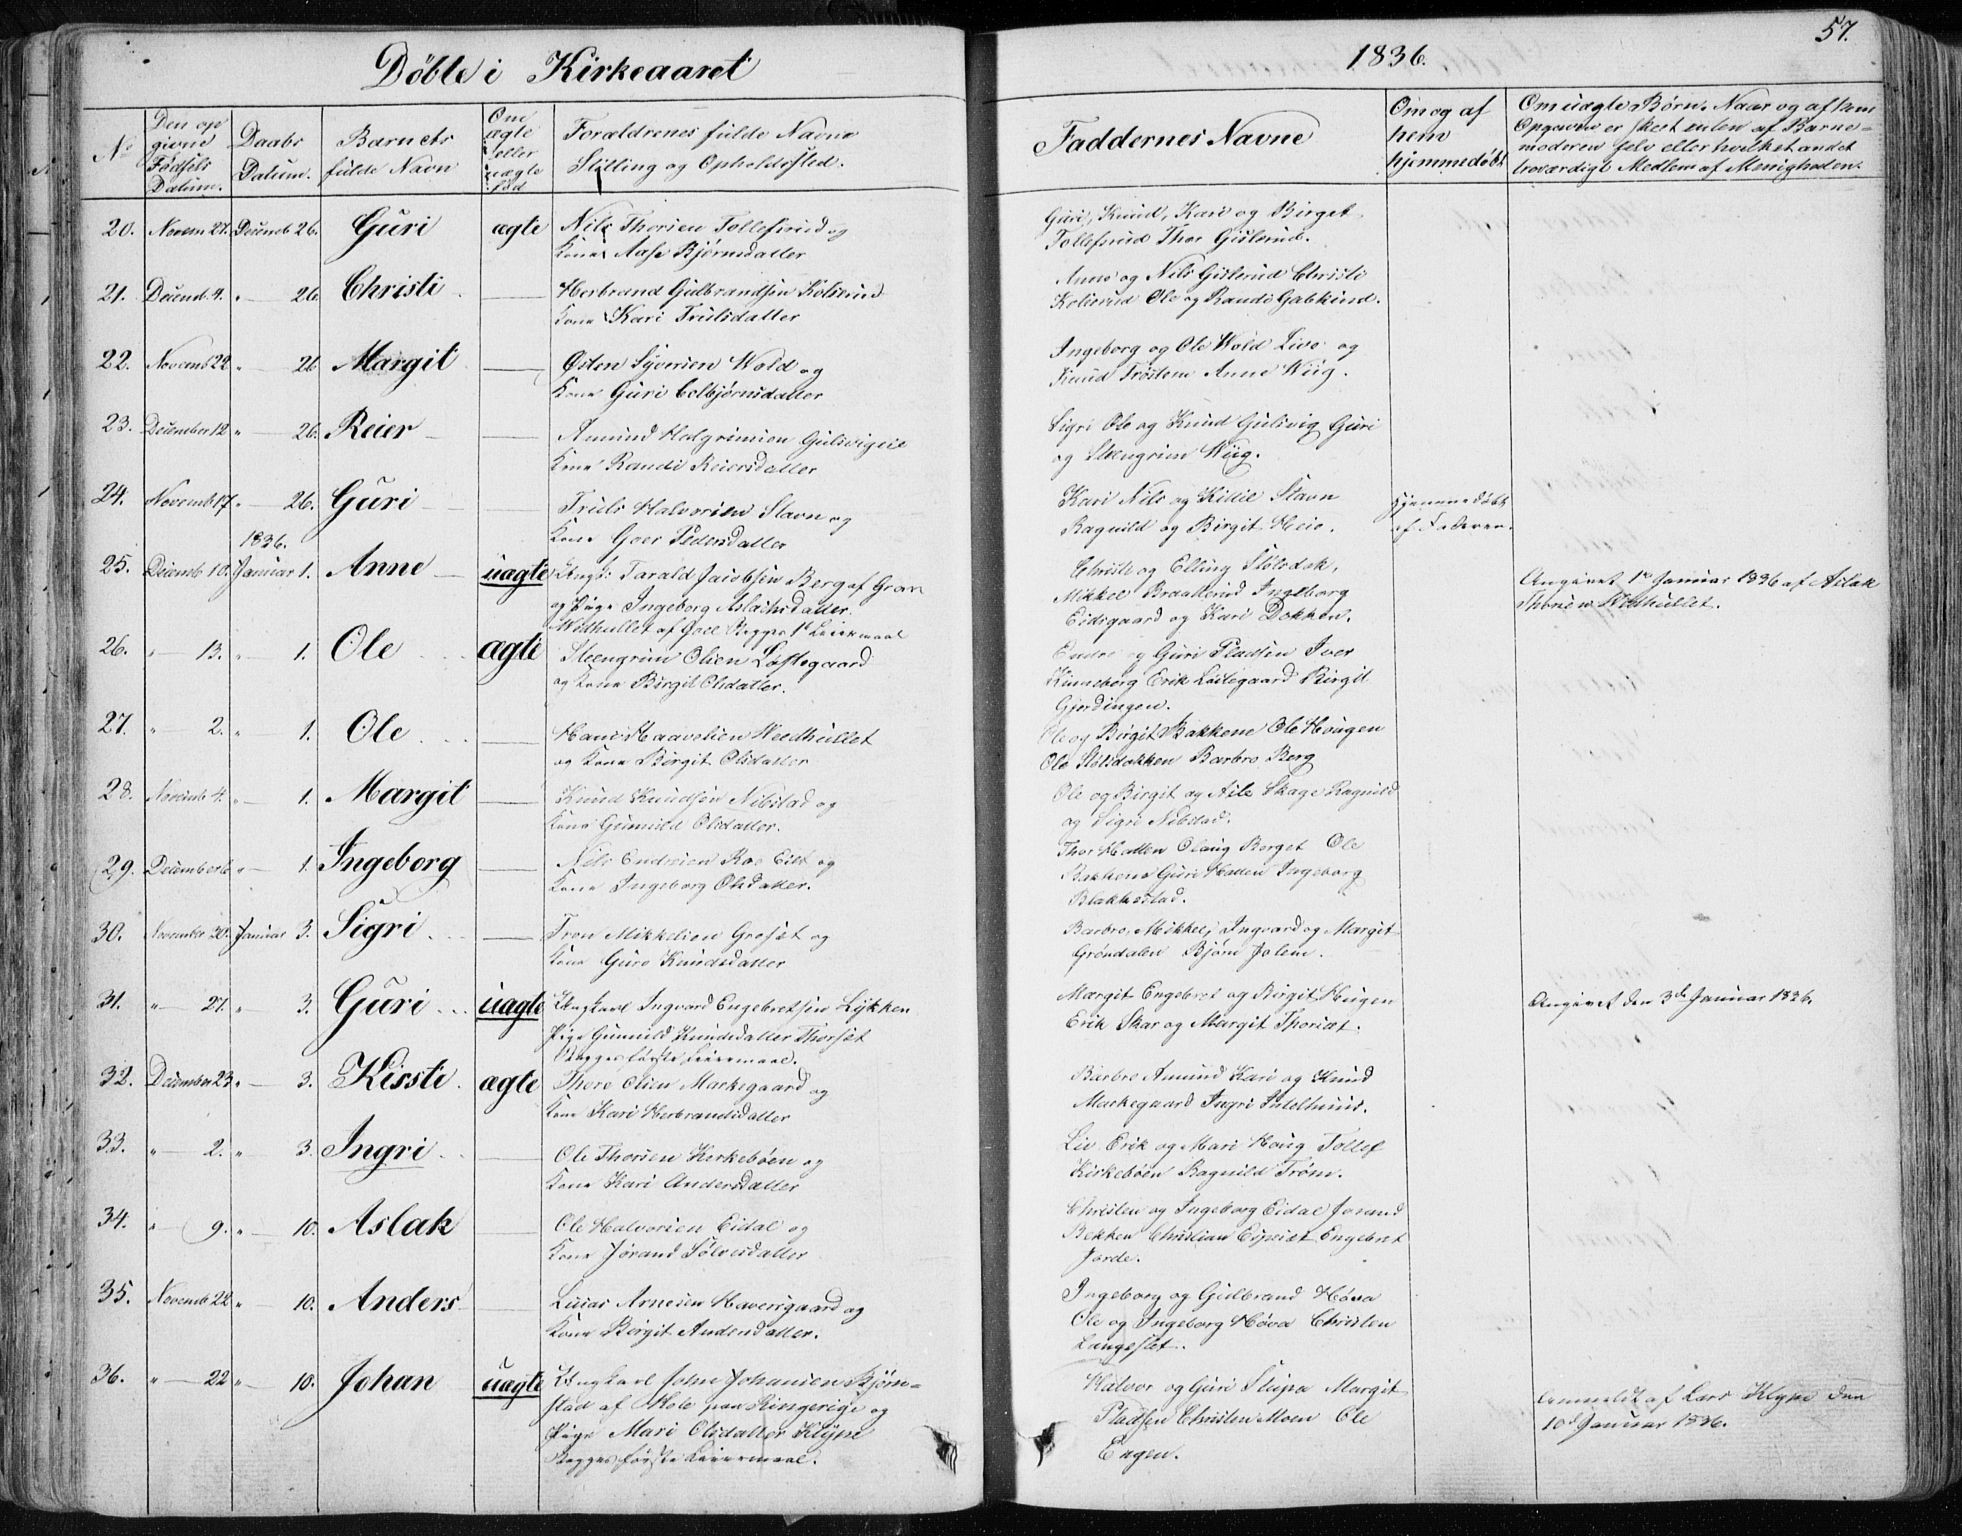 Døbte i Kirkeaaret
1836.
57.
No
Den op
givne
Fødsels
Datum.
Daabs
Datum.
Barnets
fulde Navn
Om
ægte
eller
uægte
fød
Forældrenes fulde Navne
Stilling og Opholdssted.
Faddernes Navne
Om og af
hem
hjemmedøbt
Om uægte Børn. Naar og af hem
Opgaven er skeet enten af Barne-
moderen selv eller hvilket andet
troværdigt Medlem af Menigheden.
20. Novem 27. Decemb 26. Guri ægte Nils Thorsen Tollefsrud og
Kone Aase Bjørnsdatter
Guri, Knud, Kari og Birget
Tollefsrud Thor Gislerud.
21. Decemb 4. " 26. Christi Herbrand Gulbrandsen Kolsrud
Kone Kari Trulsdatter
Anne og Nils Gislerud Christi
Kolsrud Ole og Randi
22. Novemb 22 " 26 Margit Østen Syversen Wold og
Kone Guri Colbjørnsdatter
Ingeborg og Ole Wold Live og
Knud Trøstem Anne Wiig.
23. December 12 " 26. Reier Amund Halgrimsen Gulsvig
Kone Randi Reiersdatter
Sigri Ole og Knud Gulsvig Guri
og Steengrim Wiig.
24. Novemb 17 " 26. Guri Truls Halvorsen Stavn og
Kone Goer Pedersdatter
Kari Nils og Kidil Stavn
Ragnild og Birgit Heie.
Hjemmedøbt
af Faderen.
1836.
25. Decemb 10. Januar 1. Anne uægte Ungk: Tarald Jacobsen Berg af Gran
og Pige Ingeborg Aslachsdatter
Widhullet af Goel Begges 1te Leiermaal
Christi og Elling Stølsdok,
Mikkel Braaterud Ingeborg
Eidsgaard og Kari Dokken.
Angivet 1te Januar 1836 af Aslak
Thorsen Widhullet.
26. " 13. " 1. Ole ægte Steengrim Olsen Løstegaard
og Kone Birgit Olsdatter.
Endre og Guri Pladsen Iver
Kinneberg Erik Løstegaard Birgit
Gjerdingen.
27. " 2. " 1. Ole Hans Haavelsen Weedhullet
og Kone Birgit Olsdatter
Ole og Birgit Bakkene Ole Hougen
Ole Stølsdokken Barbro Berg
28. Novemb 4. " 1. Margit Knud Knudsen Nibstad og
Kone Gunild Olsdatter.
Ole og Birgit og Asle Skage Ragnild
og Sigri Nibstad.
29. December 6 " 1. Ingeborg Nils Endresen Roe Eiet og
Kone Ingeborg Olsdatter.
Thor Hatten Olaug Berget Ole
Bakkene Guri Hatten Ingeborg
Blakkestad.
30. November 30. Januar 3. Sigri Tron Mikkelsen Groset og
Kone Guro Knudsdatter
Barbro, Mikkel, Ingvard og Margit
Grøndalen Bjørn Jolem.
31. " 27. " 3. Guri uægte Ungkarl Ingvard Engebretsen Lykken
Pige Gunild Knudsdatter Thorset
Begges første Leiermaal.
Margit Engebret og Birgit Hugen
Erik Skar og Margit Thorset.
Angivet den 3de Januar 1836.
32. December 23 " 3. Kirsti ægte Thore Olsen Markegaard og
Kone Kari Herbrandsdatter
Barbro Amund Kari og Knud
Markegaard Ingri
33. " 2. " 3. Ingri Ole Thorsen Kerkebøen og
Kone Kari Andersdatter
Liv Erik og Mari Houg Tollef
Kirkebøen Ragnild Trøm.
34. " 9. " 10. Aslak Ole Halvorsen Eidal og
Kone Jørand Sølvesdatter
Christen og Ingeborg Eidal Jørand
Bekken Christian Espeset Engebret
Jorde.
35. Novemb 22 " 10. Anders Lucas Arnesen Haversgaard og
Kone Birgit Andersdatter.
Ingeborg og Gulbrand Høva
Ole og Ingeborg Høva Christen
Langeslet.
36. " 22 " 10. Johan uægte Ungkarl John Johansen Bjørn-
stad af Hole paa Ringerige og
Pige Mari Olsdatter Klype
Begges første Leiermaal.
Halvor og Guri Stupa Margit
Pladsen Christen Moen Ole
Engen.
Anmeldt af Lars Klype den
10de Januar 1836.